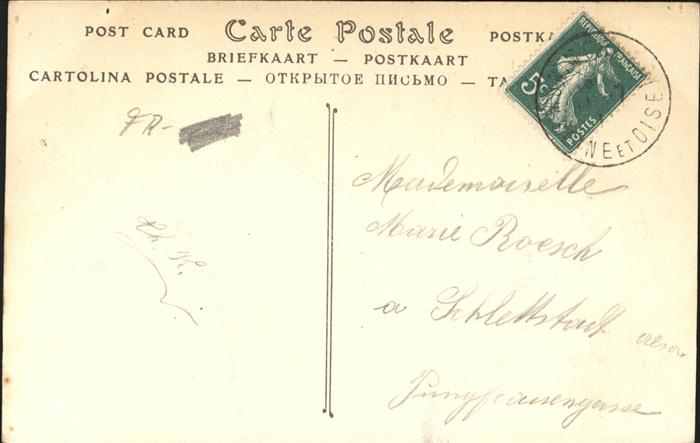 POST CARD Carte Postale POSTKA
BRIEFKAART — POSTKAART
CARTOLINA POSTALE — ОТКРЫТОЕ ПИСЬМО — TA
REPUBLIQUE FRANÇAISE
5c
POSTES
NE ET OISE
FR-
Ch. K.
Mademoiselle
Marie Roesch
a Schlettstadt
Jungfrauengasse